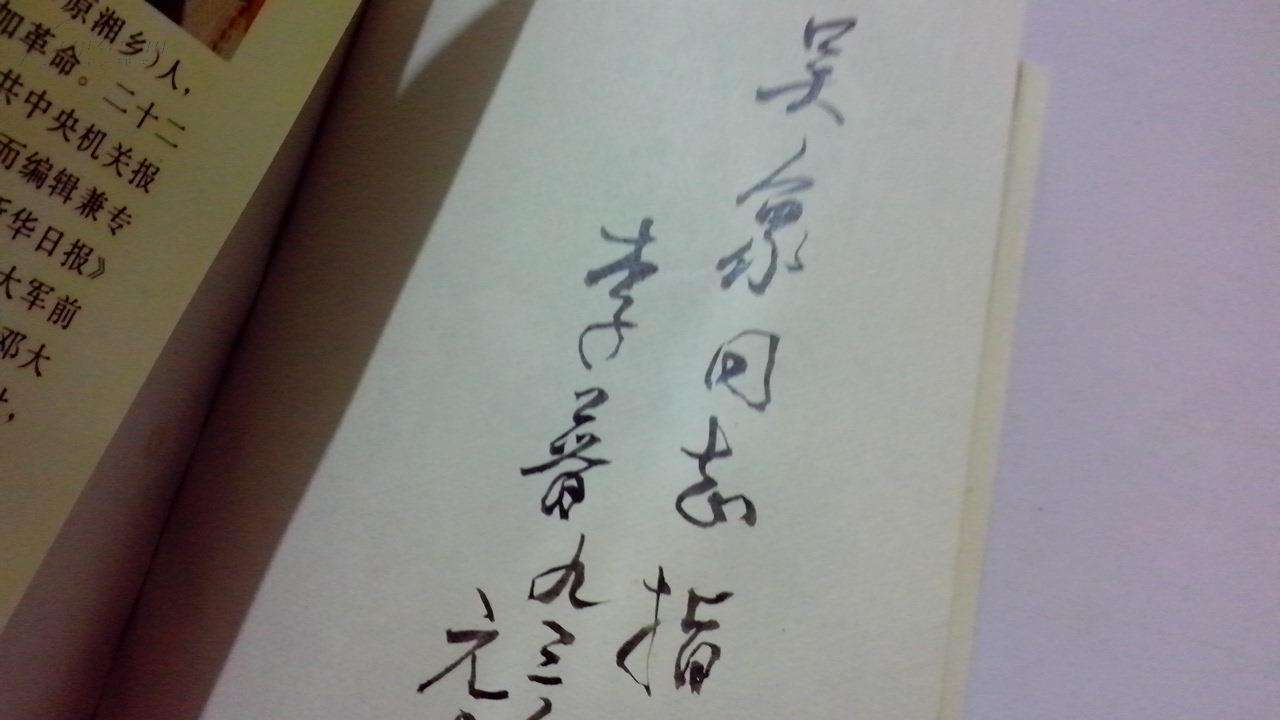 原湘乡)人,
加革命。二十二
共中央机关报
而编辑兼专
华日报》
大军前
邓大
吴象同志 指
李普 九三
元